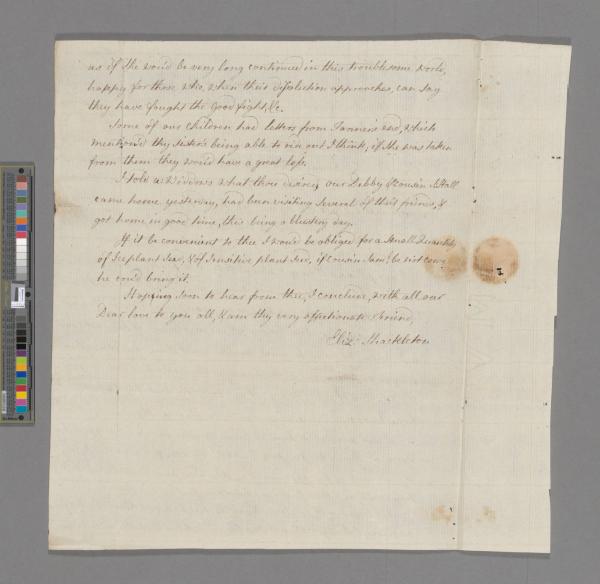 as if she wou'd be very long continued in this troublesome world,
happy for those who, when their dissolution approaches, can say
they have fought the good fight, &c.
Some of our Children had letters from thence, which
mention'd thy sister's being able to run out I think, if she was taken
from them they wou'd have a great loss.
I told widows what thou desires, our Debby & Cousin
came home yesterday, had been visiting several of their friends, &
got home in good time, this being a blustry day.
If it be convenient to thee I wou'd be obliged for a small Quantity
of Iceplant seed, & of sensitive plant seed, if cousin Sam.l be not come
he cou'd bring it.
Hoping soon to hear from thee, I conclude, with all our
Dear love to you all, & am thy very affectionate friend,
Eliz.a Shackleton